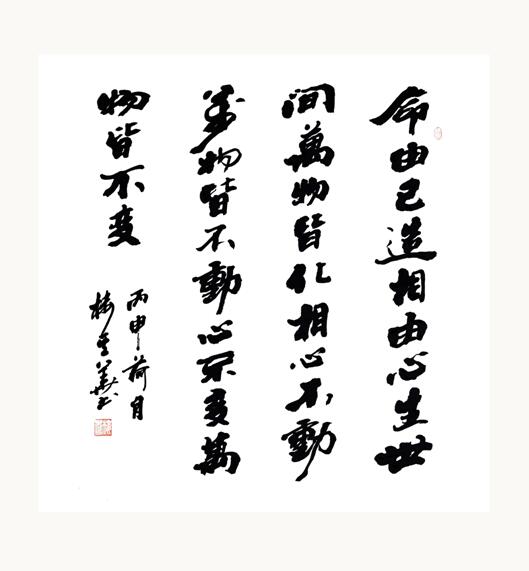 命由己造相由心生世
间萬物皆化相心不動
萬物皆不動心不变萬
物皆不变
丙申荷月